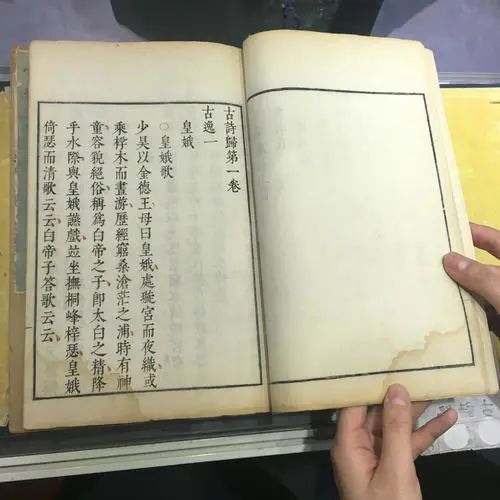 古詩歸第一卷
古逸一
皇娥
○皇娥歌
少昊以金德王母曰皇娥處璇宮而夜織或
乘桴木而晝游歷經窮桑滄茫之浦時有神
童容貌絕俗稱爲白帝之子即太白之精降
乎水際與皇娥讌戲竝坐撫桐峰梓瑟皇娥
倚瑟而清歌云云白帝子答歌云云